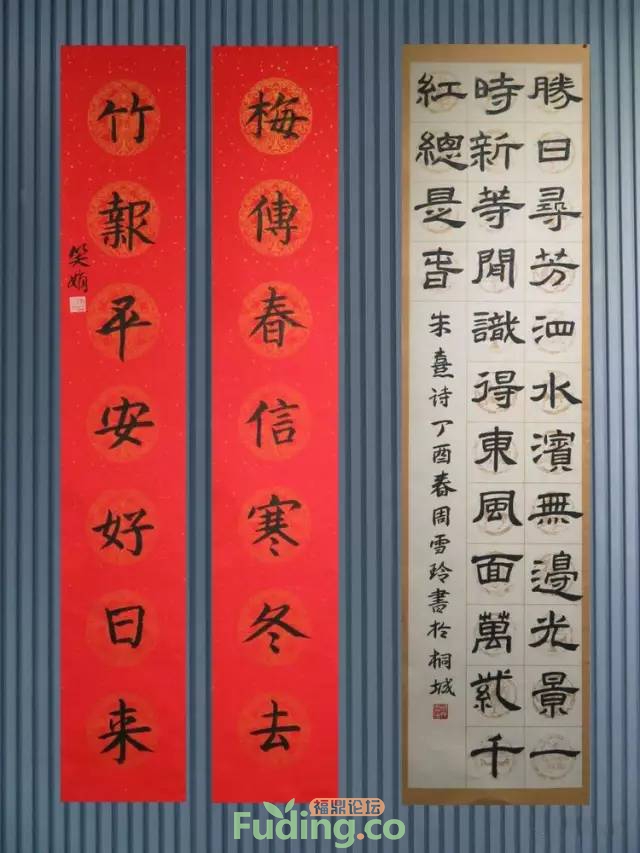 勝日尋芳泗水濱無邊光景一
時新等閒識得東風面萬紫千
紅總是春
朱熹诗丁酉春周雪玲書於桐城
梅傳春信寒冬去
竹報平安好日来
笑娟
福鼎论坛
Fuding.co